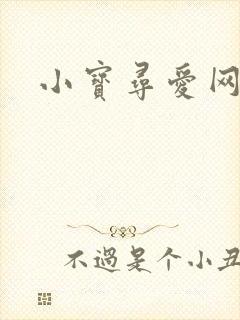 小寳尋愛网
不過是个小丑